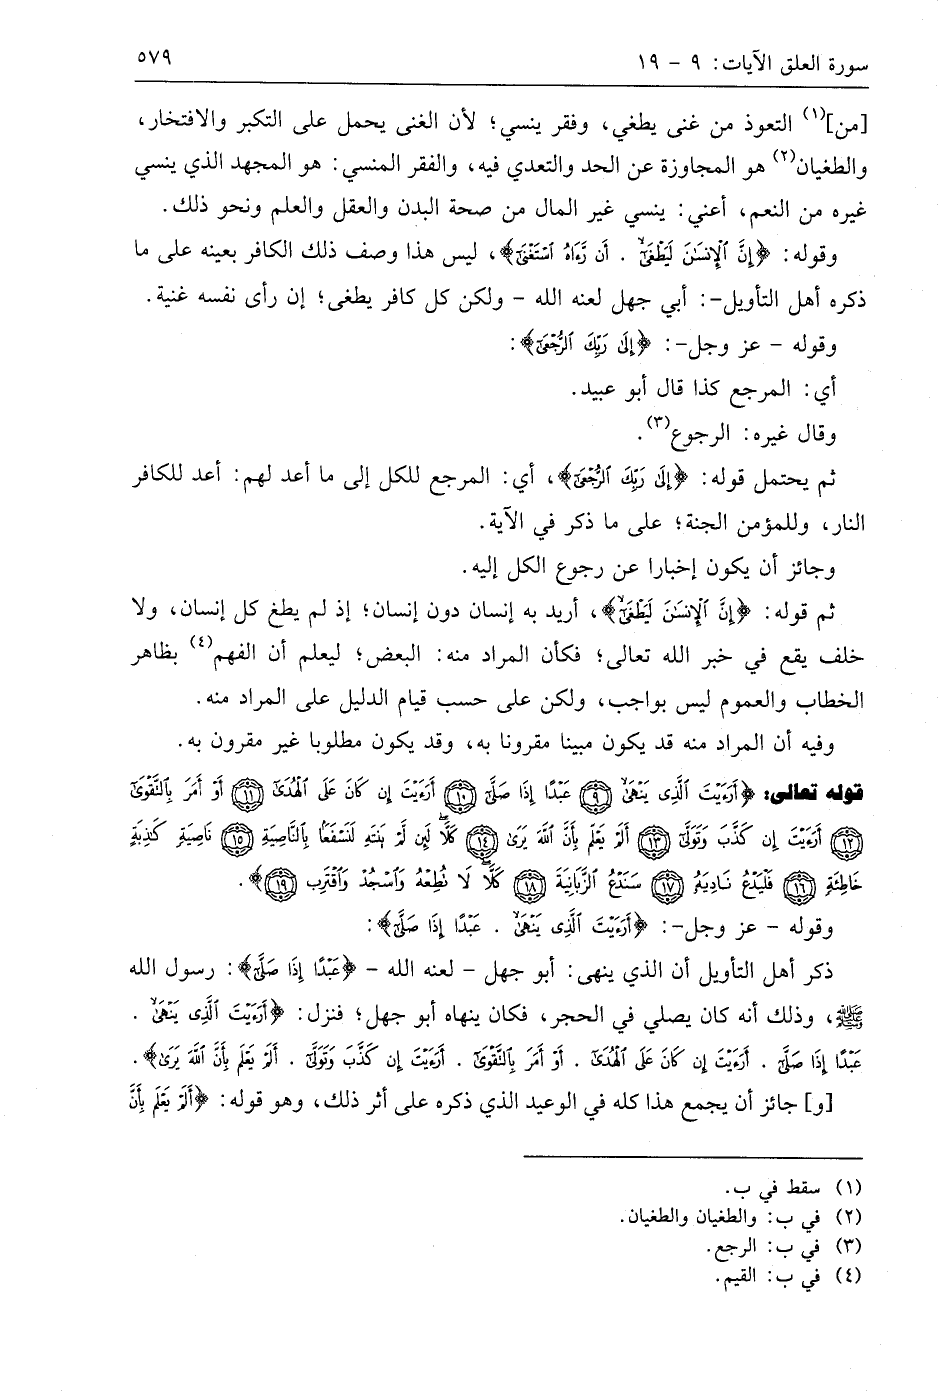 سورة العلق الآيات: ٩ - ١٩
٥٧٩
[من](١) التعوذ من غنى يطغي، وفقر ينسي؛ لأن الغنى يحمل على التكبر والافتخار،
والطغيان(٢) هو المجاوزة عن الحد والتعدي فيه، والفقر المنسي: هو المجهد الذي ينسي
غيره من النعم، أعني: ينسي غير المال من صحة البدن والعقل والعلم ونحو ذلك.
وقوله: ﴿إِنَّ ٱلْإِنسَٰنَ لَيَطْغَىٰٓ . أَن رَّءَاهُ ٱسْتَغْنَىٰٓ﴾، ليس هذا وصف ذلك الكافر بعينه على ما
ذكره أهل التأويل-: أبي جهل لعنه الله - ولكن كل كافر يطغى؛ إن رأى نفسه غنية.
وقوله - عز وجل-: ﴿إِلَىٰ رَبِّكَ ٱلرُّجْعَىٰٓ﴾:
أي: المرجع كذا قال أبو عبيد.
وقال غيره: الرجوع(٣).
ثم يحتمل قوله: ﴿إِلَىٰ رَبِّكَ ٱلرُّجْعَىٰٓ﴾، أي: المرجع للكل إلى ما أعد لهم: أعد للكافر
النار، وللمؤمن الجنة؛ على ما ذكر في الآية.
وجائز أن يكون إخبارا عن رجوع الكل إليه.
ثم قوله: ﴿إِنَّ ٱلْإِنسَٰنَ لَيَطْغَىٰٓ﴾، أريد به إنسان دون إنسان؛ إذ لم يطغ كل إنسان، ولا
خلف يقع في خبر الله تعالى؛ فكأن المراد منه: البعض؛ ليعلم أن الفهم(٤) بظاهر
الخطاب والعموم ليس بواجب، ولكن على حسب قيام الدليل على المراد منه.
وفيه أن المراد منه قد يكون مبينا مقرونا به، وقد يكون مطلوبا غير مقرون به.
قوله تعالى: ﴿أَرَءَيْتَ ٱلَّذِى يَنْهَىٰ ٩ عَبْدًا إِذَا صَلَّىٰٓ ١٠ أَرَءَيْتَ إِن كَانَ عَلَى ٱلْهُدَىٰٓ ١١ أَوْ أَمَرَ بِٱلتَّقْوَىٰٓ
١٢ أَرَءَيْتَ إِن كَذَّبَ وَتَوَلَّىٰٓ ١٣ أَلَمْ يَعْلَم بِأَنَّ ٱللَّهَ يَرَىٰ ١٤ كَلَّا لَئِن لَّمْ يَنتَهِ لَنَسْفَعًۢا بِٱلنَّاصِيَةِ ١٥ نَاصِيَةٍ كَٰذِبَةٍ
خَاطِئَةٍ ١٦ فَلْيَدْعُ نَادِيَهُۥ ١٧ سَنَدْعُ ٱلزَّبَانِيَةَ ١٨ كَلَّا لَا تُطِعْهُ وَٱسْجُدْ وَٱقْتَرِب ١٩﴾.
وقوله - عز وجل-: ﴿أَرَءَيْتَ ٱلَّذِى يَنْهَىٰ . عَبْدًا إِذَا صَلَّىٰٓ﴾:
ذكر أهل التأويل أن الذي ينهى: أبو جهل - لعنه الله - ﴿عَبْدًا إِذَا صَلَّىٰٓ﴾: رسول الله
ﷺ، وذلك أنه كان يصلي في الحجر، فكان ينهاه أبو جهل؛ فنزل: ﴿أَرَءَيْتَ ٱلَّذِى يَنْهَىٰ .
عَبْدًا إِذَا صَلَّىٰٓ . أَرَءَيْتَ إِن كَانَ عَلَى ٱلْهُدَىٰٓ . أَوْ أَمَرَ بِٱلتَّقْوَىٰٓ . أَرَءَيْتَ إِن كَذَّبَ وَتَوَلَّىٰٓ . أَلَمْ يَعْلَم بِأَنَّ ٱللَّهَ يَرَىٰ﴾.
[و] جائز أن يجمع هذا كله في الوعيد الذي ذكره على أثر ذلك، وهو قوله: ﴿أَلَمْ يَعْلَم بِأَنَّ
(١) سقط في ب.
(٢) في ب: والطغيان والطغيان.
(٣) في ب: الرجع.
(٤) في ب: القيم.